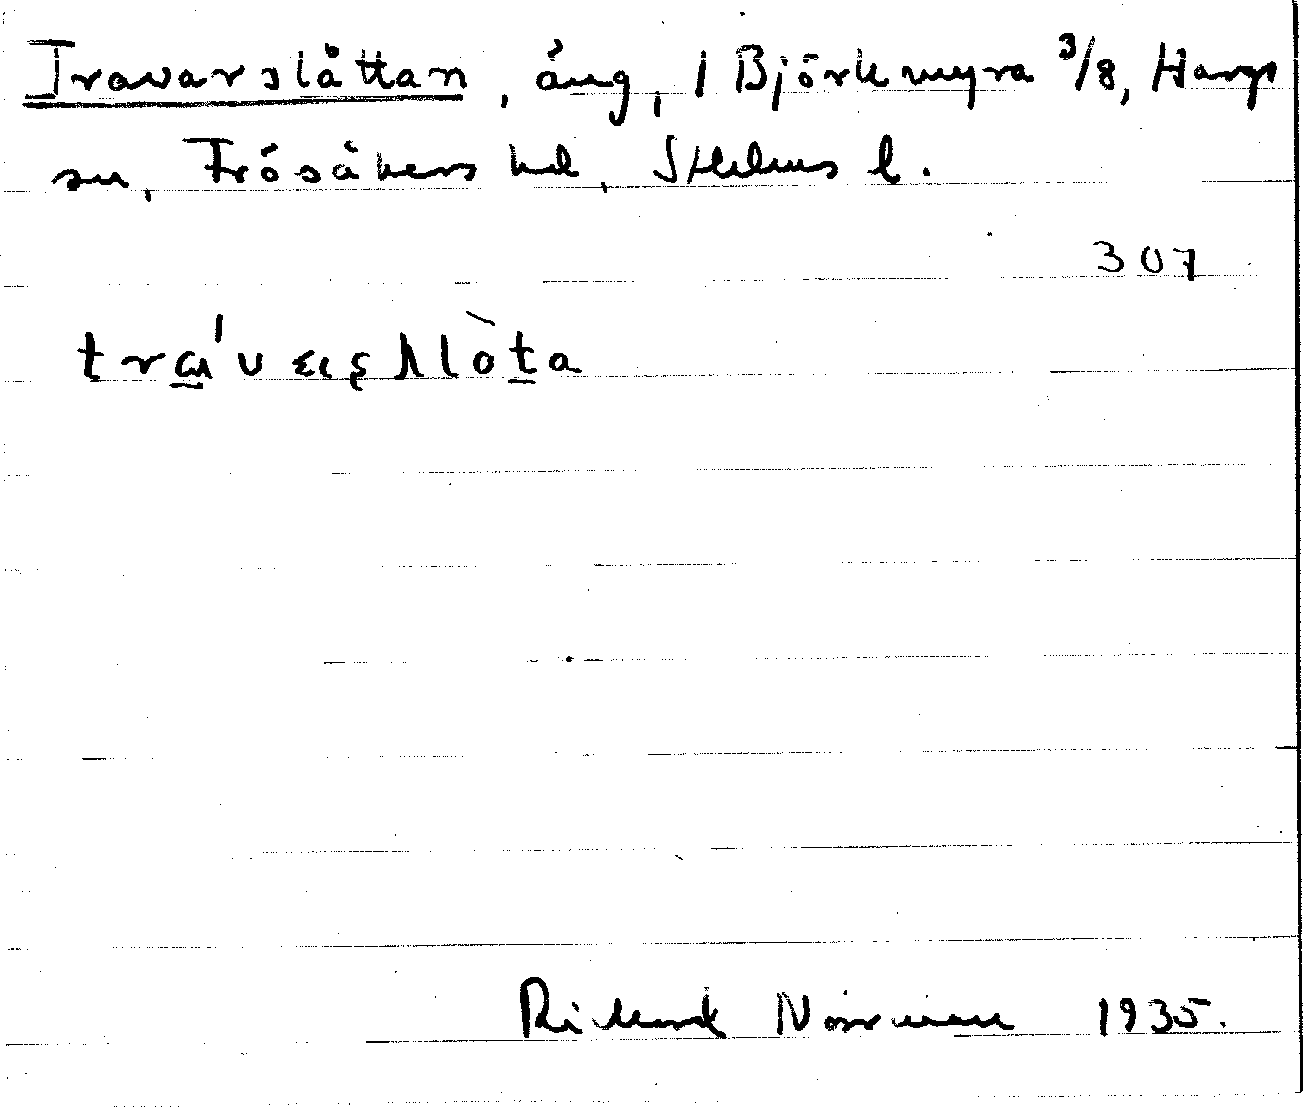 Travarslåttan, äng, 1 Björkmyra 3/8, Hargs
sn, Frösåkers hd, Sthlms l.
307
Rickard Norrman 1935.